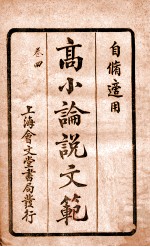 自備適用
高小論說文範
卷四
上海會文堂書局發行